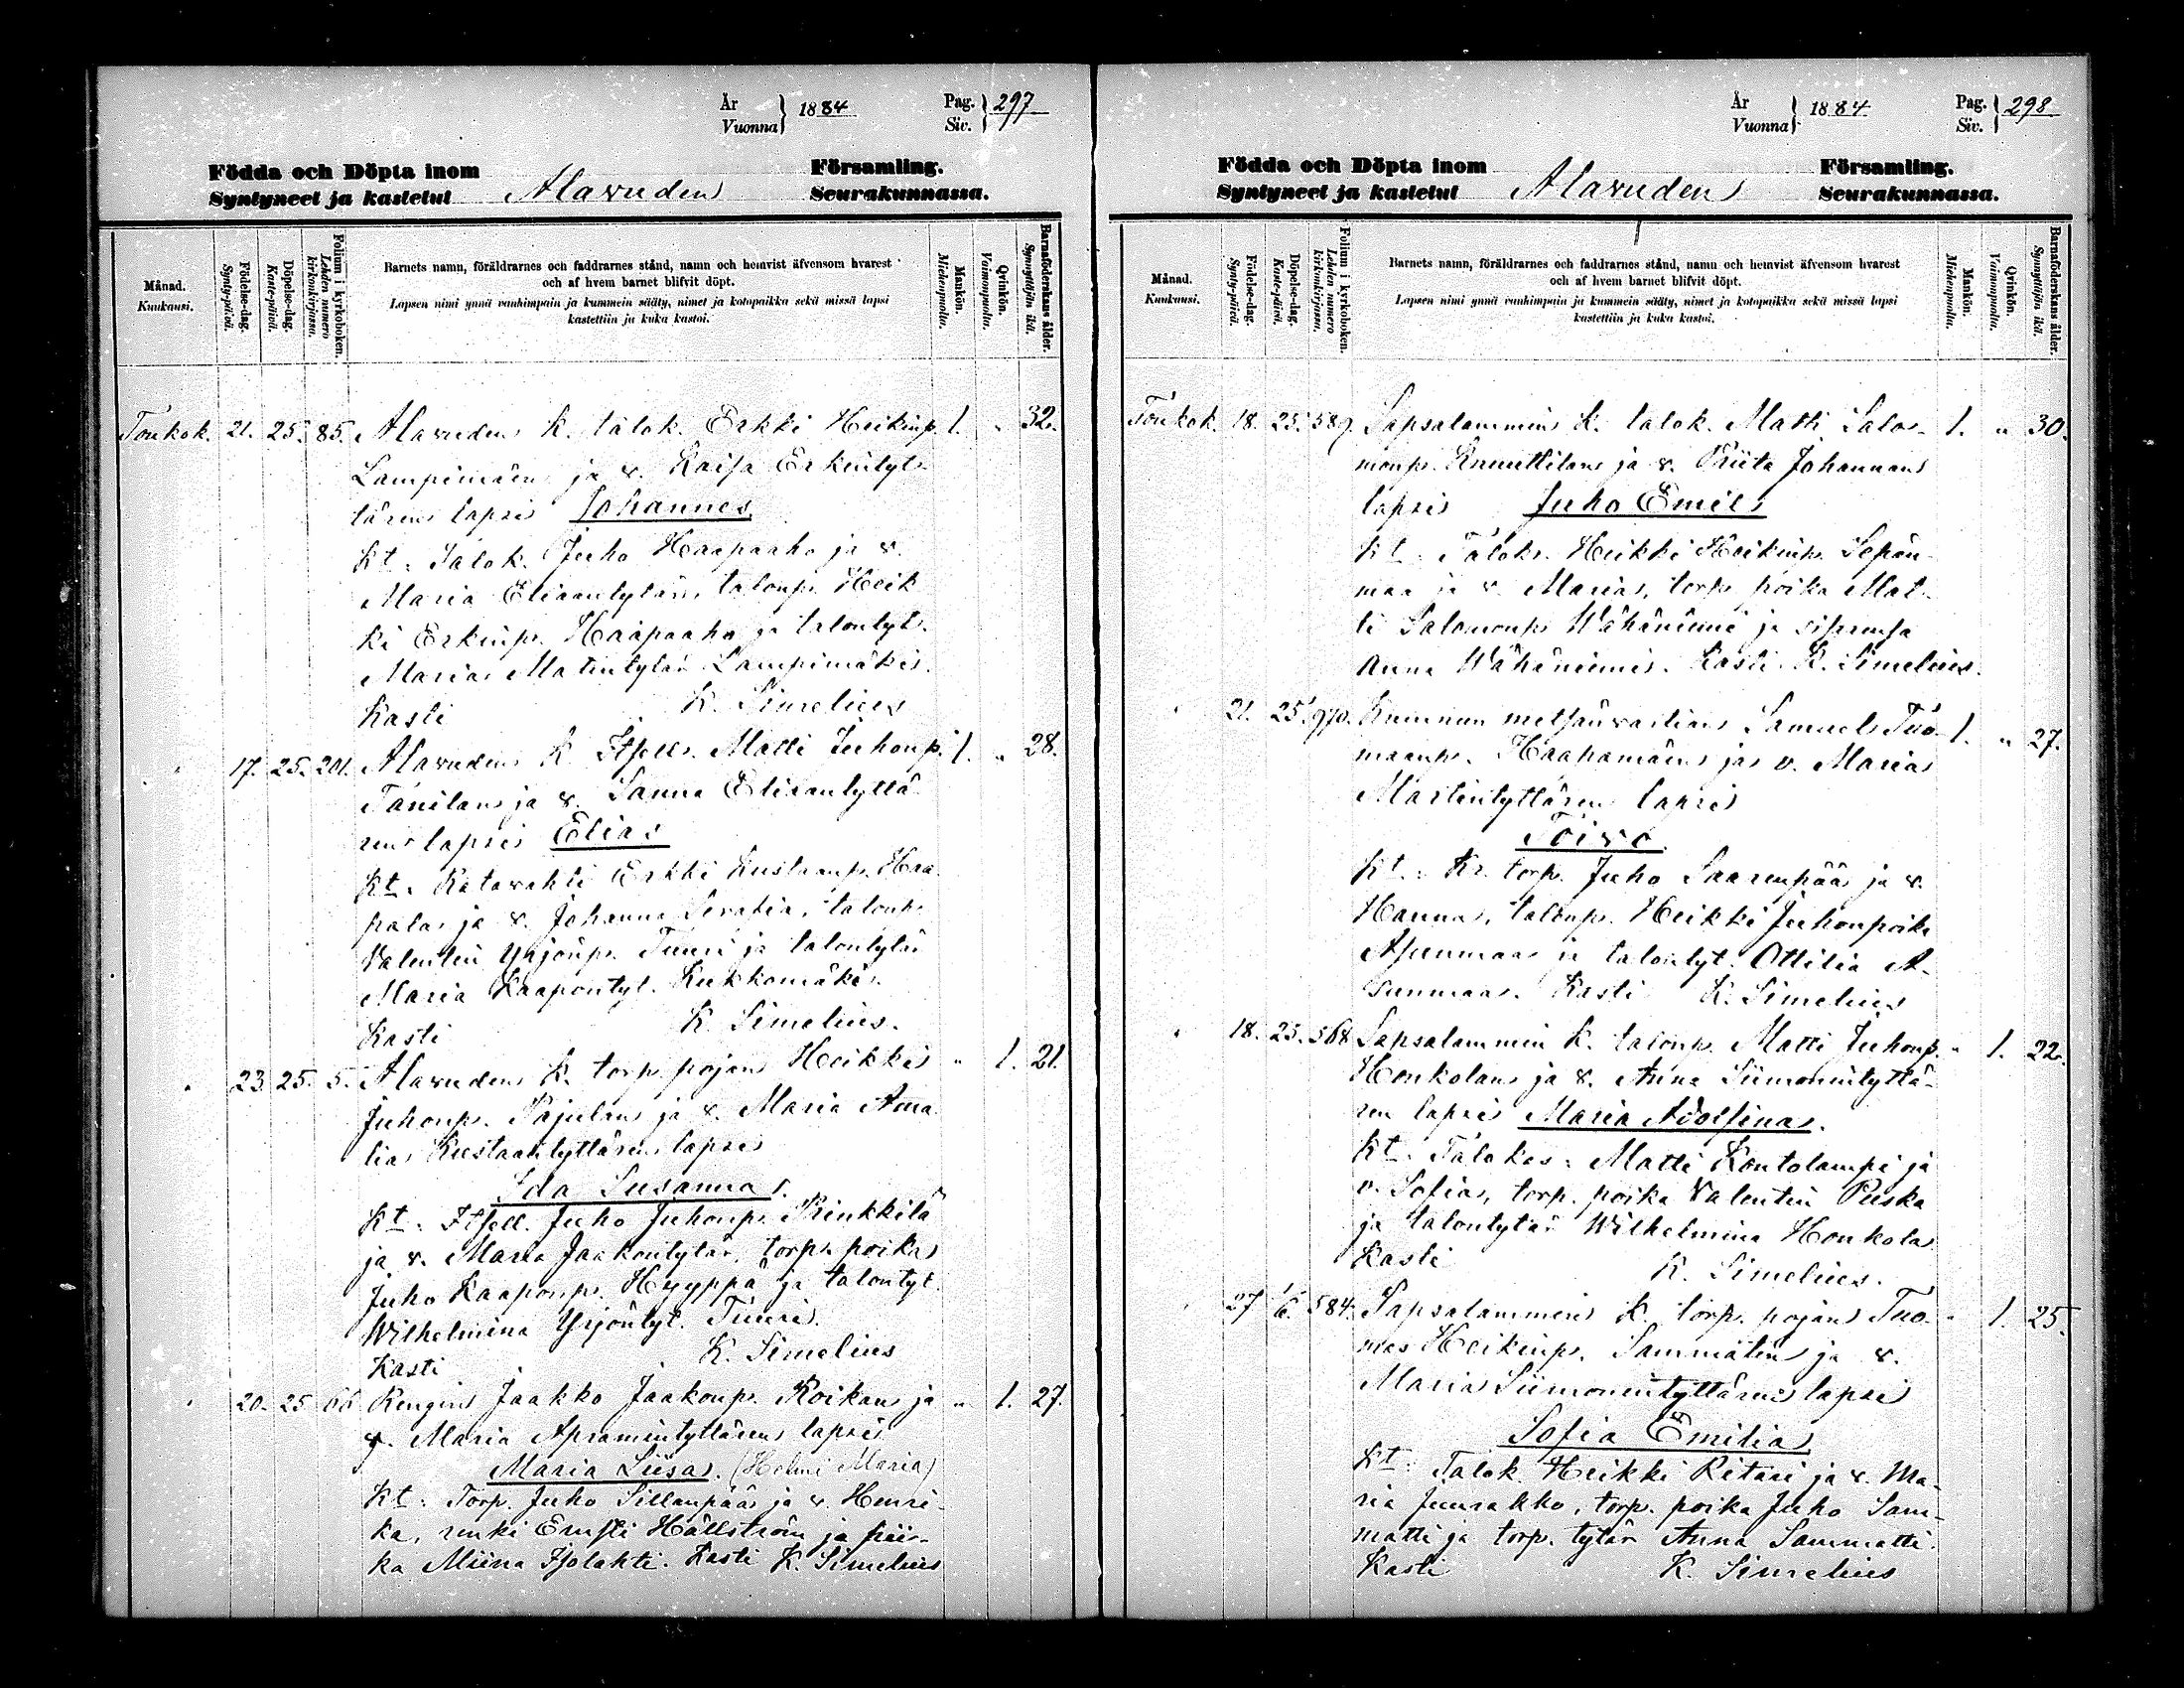 År
Vuonna } 1884
Pag.
Siv. } 297
Födda och Döpta inom Församling.
Syntyneet ja kastetut Alavuden Seurakunnassa.
Månad.
Kuukausi.
Födelse-dag.
Synty-päivä.
Döpelse-dag.
Kaste-päivä.
Folium i kyrkoboken.
Lehden numero
kirkonkirjassa.
Barnets namn, föräldrarnes och faddrarnes stånd, namn och hemvist äfvensom hvarest
och af hvem barnet blifvit döpt.
Lapsen nimi ynnä vanhimpain ja kummein sääty, nimet ja kotopaikka sekä missä lapsi
kastettiin ja kuka kastoi.
Mankön.
Miehenpuolta.
Qvinkön.
Vaimonpuolta.
Barnaföderskans ålder.
Synnyttäjän ikä.
Toukok. 21. 25. 85. Alavuden K. talok. Erkki Heikinp. 1. " 32.
Lampimäen ja v. Kaisa Erkintyt-
tären lapsi Johannes
Kt: Talok. Juho Haapaaho ja v.
Maria Eliaantytär, talonp. Heik
ki Erkinp. Haapaaho ja talontyt.
Maria Matintytär Lampimäki.
Kasti K. Simelius
" 17. 25. 201. Alavuden K. Itsell. Matti Juhonp. 1. " 28.
Tanilan ja v. Sanna Eliaantyttä
ren lapsi Elias
Kt: Ratavahti Erkki Kustaanp. Haa
pala ja v. Johanna Serafia, talonp.
Valentin Yrjönp. Tuuri ja talontytär
Maria Kaapontyt. Kukkomäki.
Kasti K. Simelius.
" 23. 25. 5. Alavuden K. torp. pojan Heikki " 1. 21.
Juhonp. Pajulan ja v. Maria Ama
lia Kustaantyttären lapsi
Ida Susanna.
Kt: Itsell. Juho Juhonp. Rinkkilä
ja v. Maria Jaakontytär, torp. poika
Juho Kaaponp. Hyyppä ja talontyt.
Wilhelmina Yrjöntyt. Tuuri.
Kasti K. Simelius
" 20. 25. 66 Rengin Jaakko Jaakonp. Koikan ja " 1. 27.
v. Maria Apramintyttären lapsi
Maria Liisa. (Helmi Maria)
Kt: Torp. Juho Sillanpää ja v. Henri-
ka, renki Ernsti Hällström ja pii-
ka Miina Isolahti. Kasti K. Simelius
År
Vuonna } 1884
Pag.
Siv. } 298
Födda och Döpta inom Församling.
Syntyneet ja kastetut Alavuden Seurakunnassa.
Månad.
Kuukausi.
Födelse-dag.
Synty-päivä.
Döpelse-dag.
Kaste-päivä.
Folium i kyrkoboken.
Lehden numero
kirkonkirjassa.
Barnets namn, föräldrarnes och faddrarnes stånd, namn och hemvist äfvensom hvarest
och af hvem barnet blifvit döpt.
Lapsen nimi ynnä vanhimpain ja kummein sääty, nimet ja kotopaikka sekä missä lapsi
kastettiin ja kuka kastoi.
Mankön.
Miehenpuolta.
Qvinkön.
Vaimonpuolta.
Barnaföderskans ålder.
Synnyttäjän ikä.
Toukok. 18. 25. 589. Sapsalammin K. talok. Matti Salo- 1. " 30.
monp. Knuuttilan ja v. Priita Johannan
lapsi Juho Emil
Kt: Talok. Heikki Heikinp. Sepän
maa ja v. Maria, torp. poika Mat-
ti Salomonp. Wähäniemi ja sisarensa
Anna Wähäniemi. Kasti K. Simelius.
" 21. 25. 970. Kunnun metsänvartian Samuel Tuo- 1. " 27.
maanp. Haahamäen ja v. Maria
Martintyttären lapsi
Toivo.
Kt: Kr. torp. Juho Saarenpää ja v.
Hanna, talonp. Heikki Juhonpoika
Asunmaa ja talontyt. Ottilia A-
sunmaa. Kasti K. Simelius
" 18. 25. 568 Sapsalammin K. talonp. Matti Juhonp. " 1. 22.
Honkolan ja v. Anna Siimonintyttä-
ren lapsi Maria Adolfina.
Kt: Talokas: Matti Kontolampi ja
v. Sofia, torp. poika Valentin Puska
ja talontytär Wilhelmina Honkola
Kasti K. Simelius.
" 27 1/6. 584. Sapsalammin K. torp. pojan Tuo- " 1. 25.
mas Heikinp. Sammatin ja v.
Maria Siimonintyttären lapsi
Sofia Emilia
Kt: Talok. Heikki Ritari ja v. Ma-
ria Juurakko, torp. poika Juho Sam-
matti ja torp. tytär Anna Sammatti.
Kasti K. Simelius